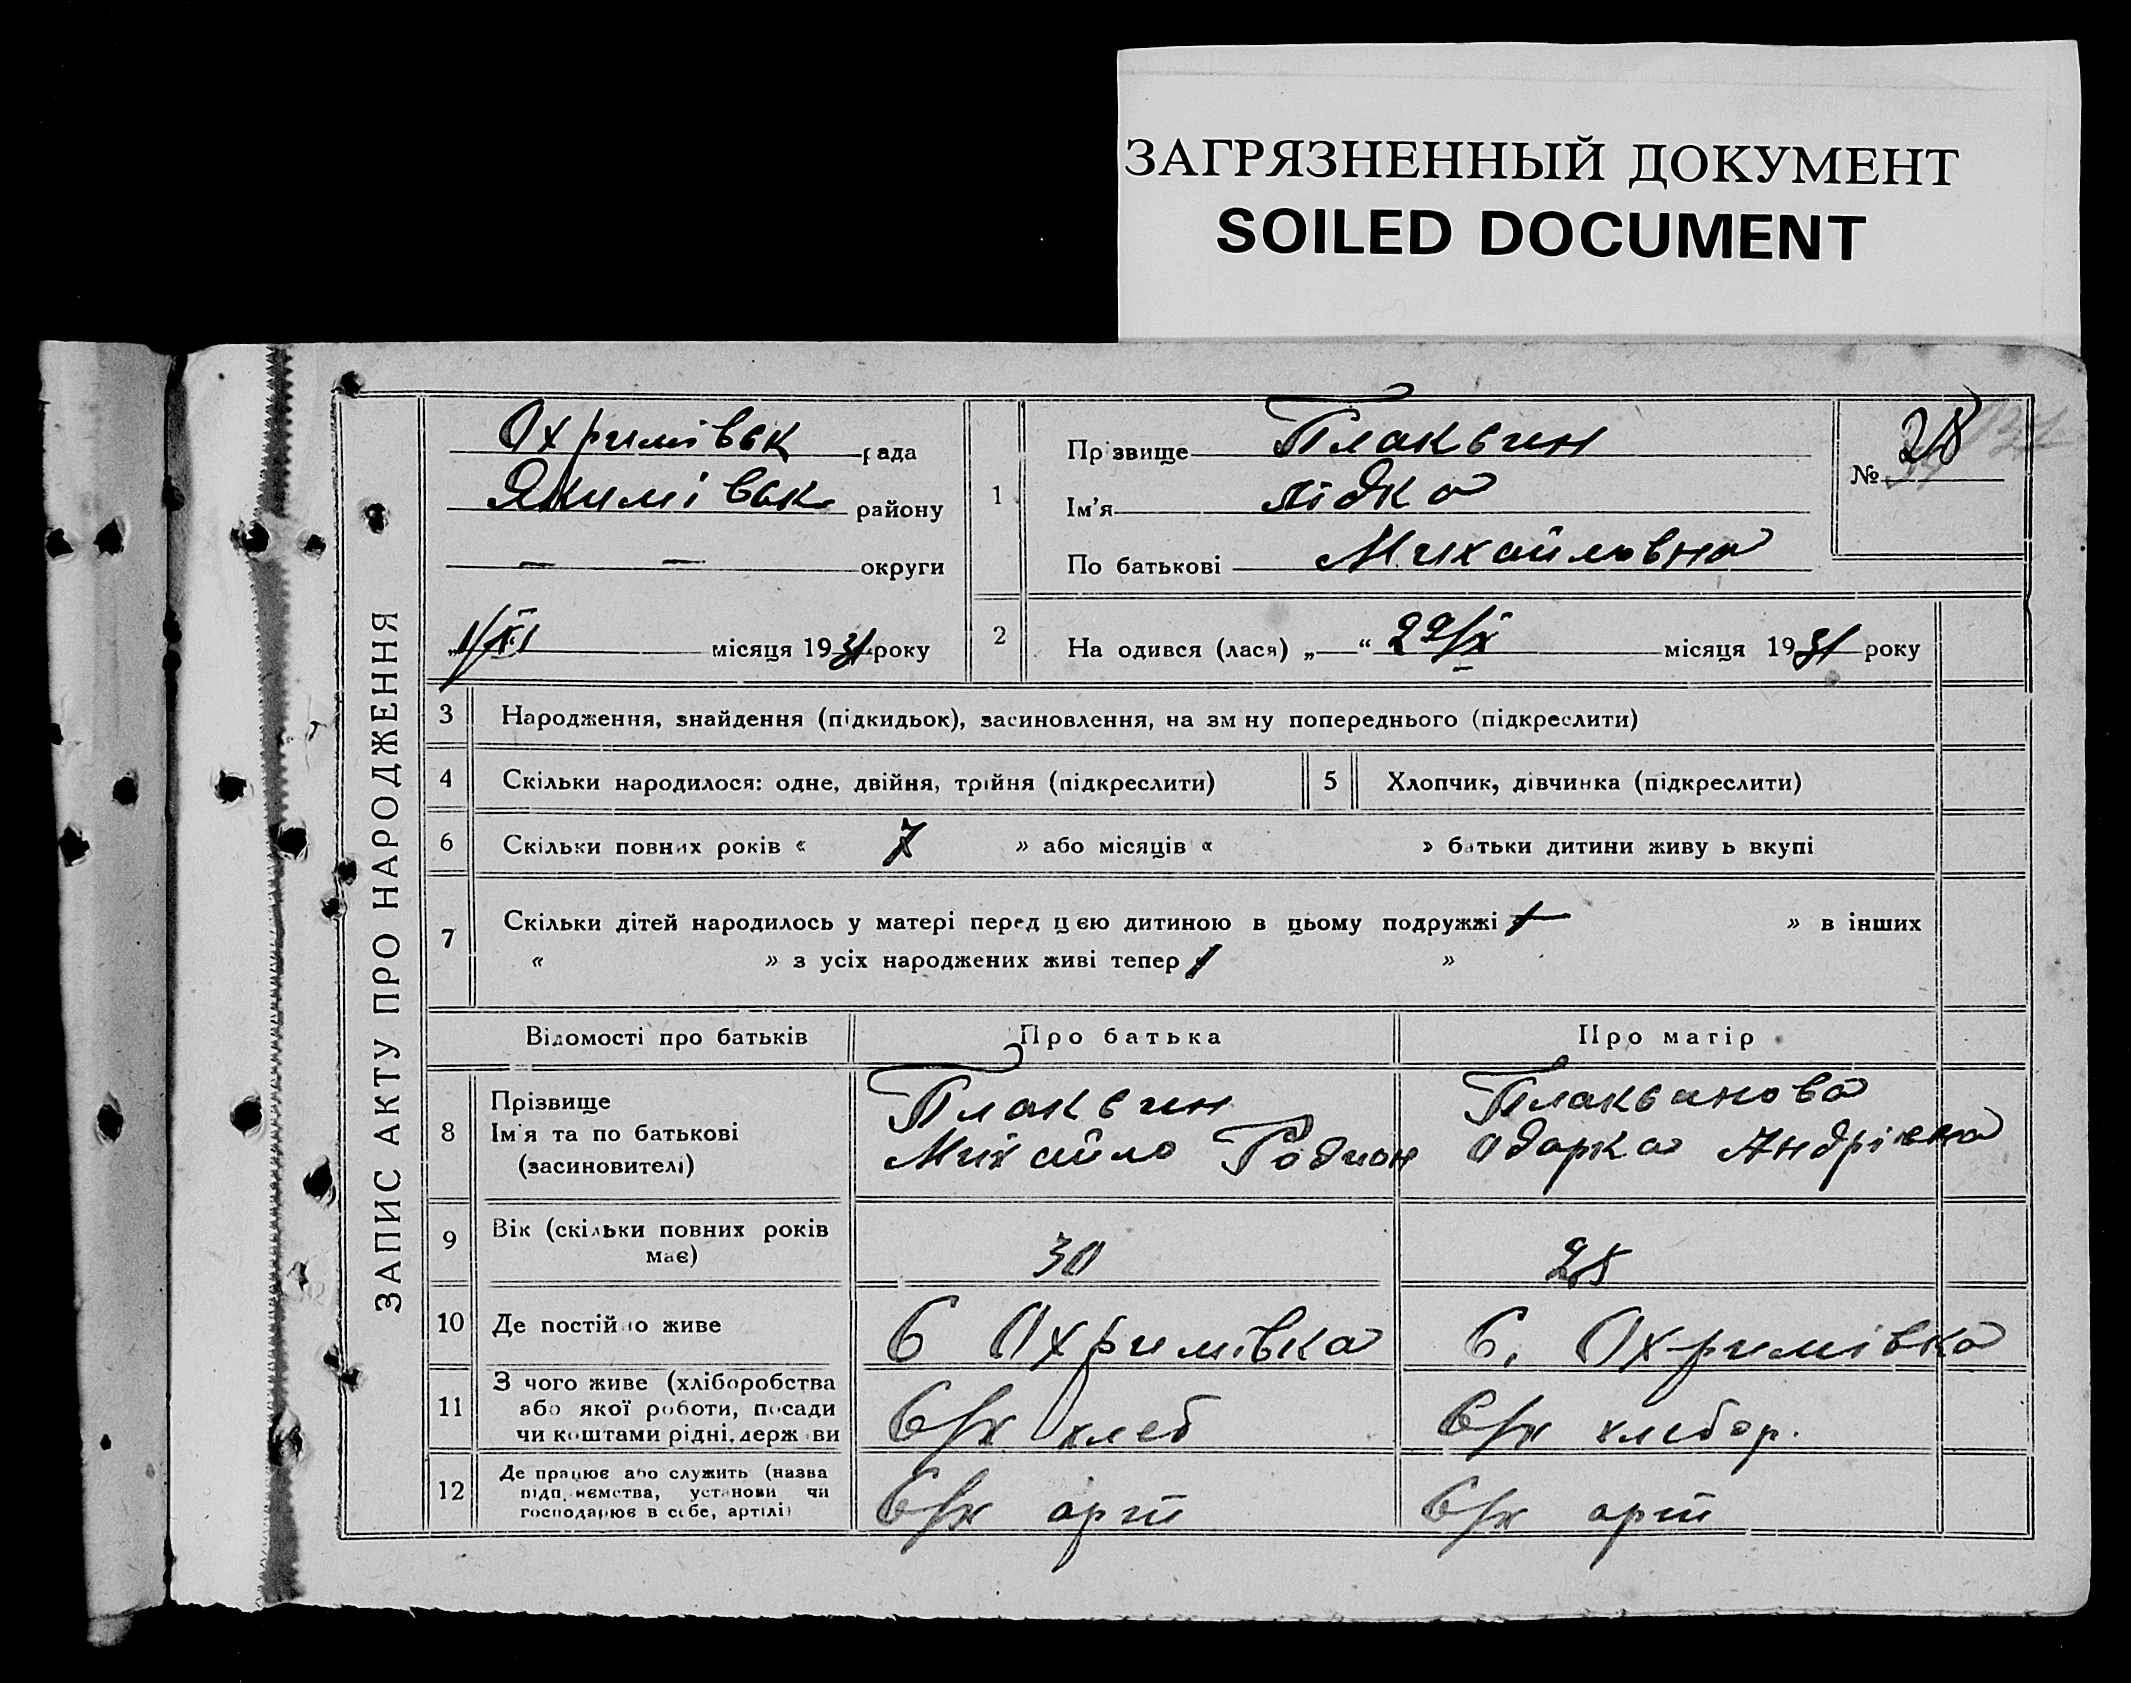 ЗАГРЯЗНЕННЫЙ ДОКУМЕНТ
SOILED DOCUMENT
ЗАПИС АКТУ ПРО НАРОДЖЕННЯ
Охримівськ рада
Якимівськ району
— — округи
1/XI місяця 1931 року
1
Прізвище Плаксин
Ім'я Лідка
По батькові Михайловна
№ 28
2
На одився (лася) „ “ 22/X місяця 1931 року
3 Народження, знайдення (підкидьок), засиновлення, на зм ну попереднього (підкреслити)
4 Скільки народилося: одне, двійня, трійня (підкреслити)
5 Хлопчик, дівчинка (підкреслити)
6 Скільки повних років « 7 » або місяців « » батьки дитини живу ь вкупі
7 Скільки дітей народилось у матері перед цією дитиною в цьому подружжі 1 » в інших
« » з усіх народжених живі тепер 1 »
Відомості про батьків Про батька Про матір
8 Прізвище
Ім'я та по батькові
(засиновителі)
Плаксин
Михайло Родион
Плаксинова
Одарка Андрієвна
9 Вік (скільки повних років
має)
30
28
10 Де постійно живе
С Охримівка
С. Охримівка
11 З чого живе (хліборобства
або якої роботи, посади
чи коштами рідні, держ ви
С/х хлеб
С/х хлебор.
12 Де працює або служить (назва
підп ємства, установи чи
господарює в себе, артілі)
С/х арт
С/х арт